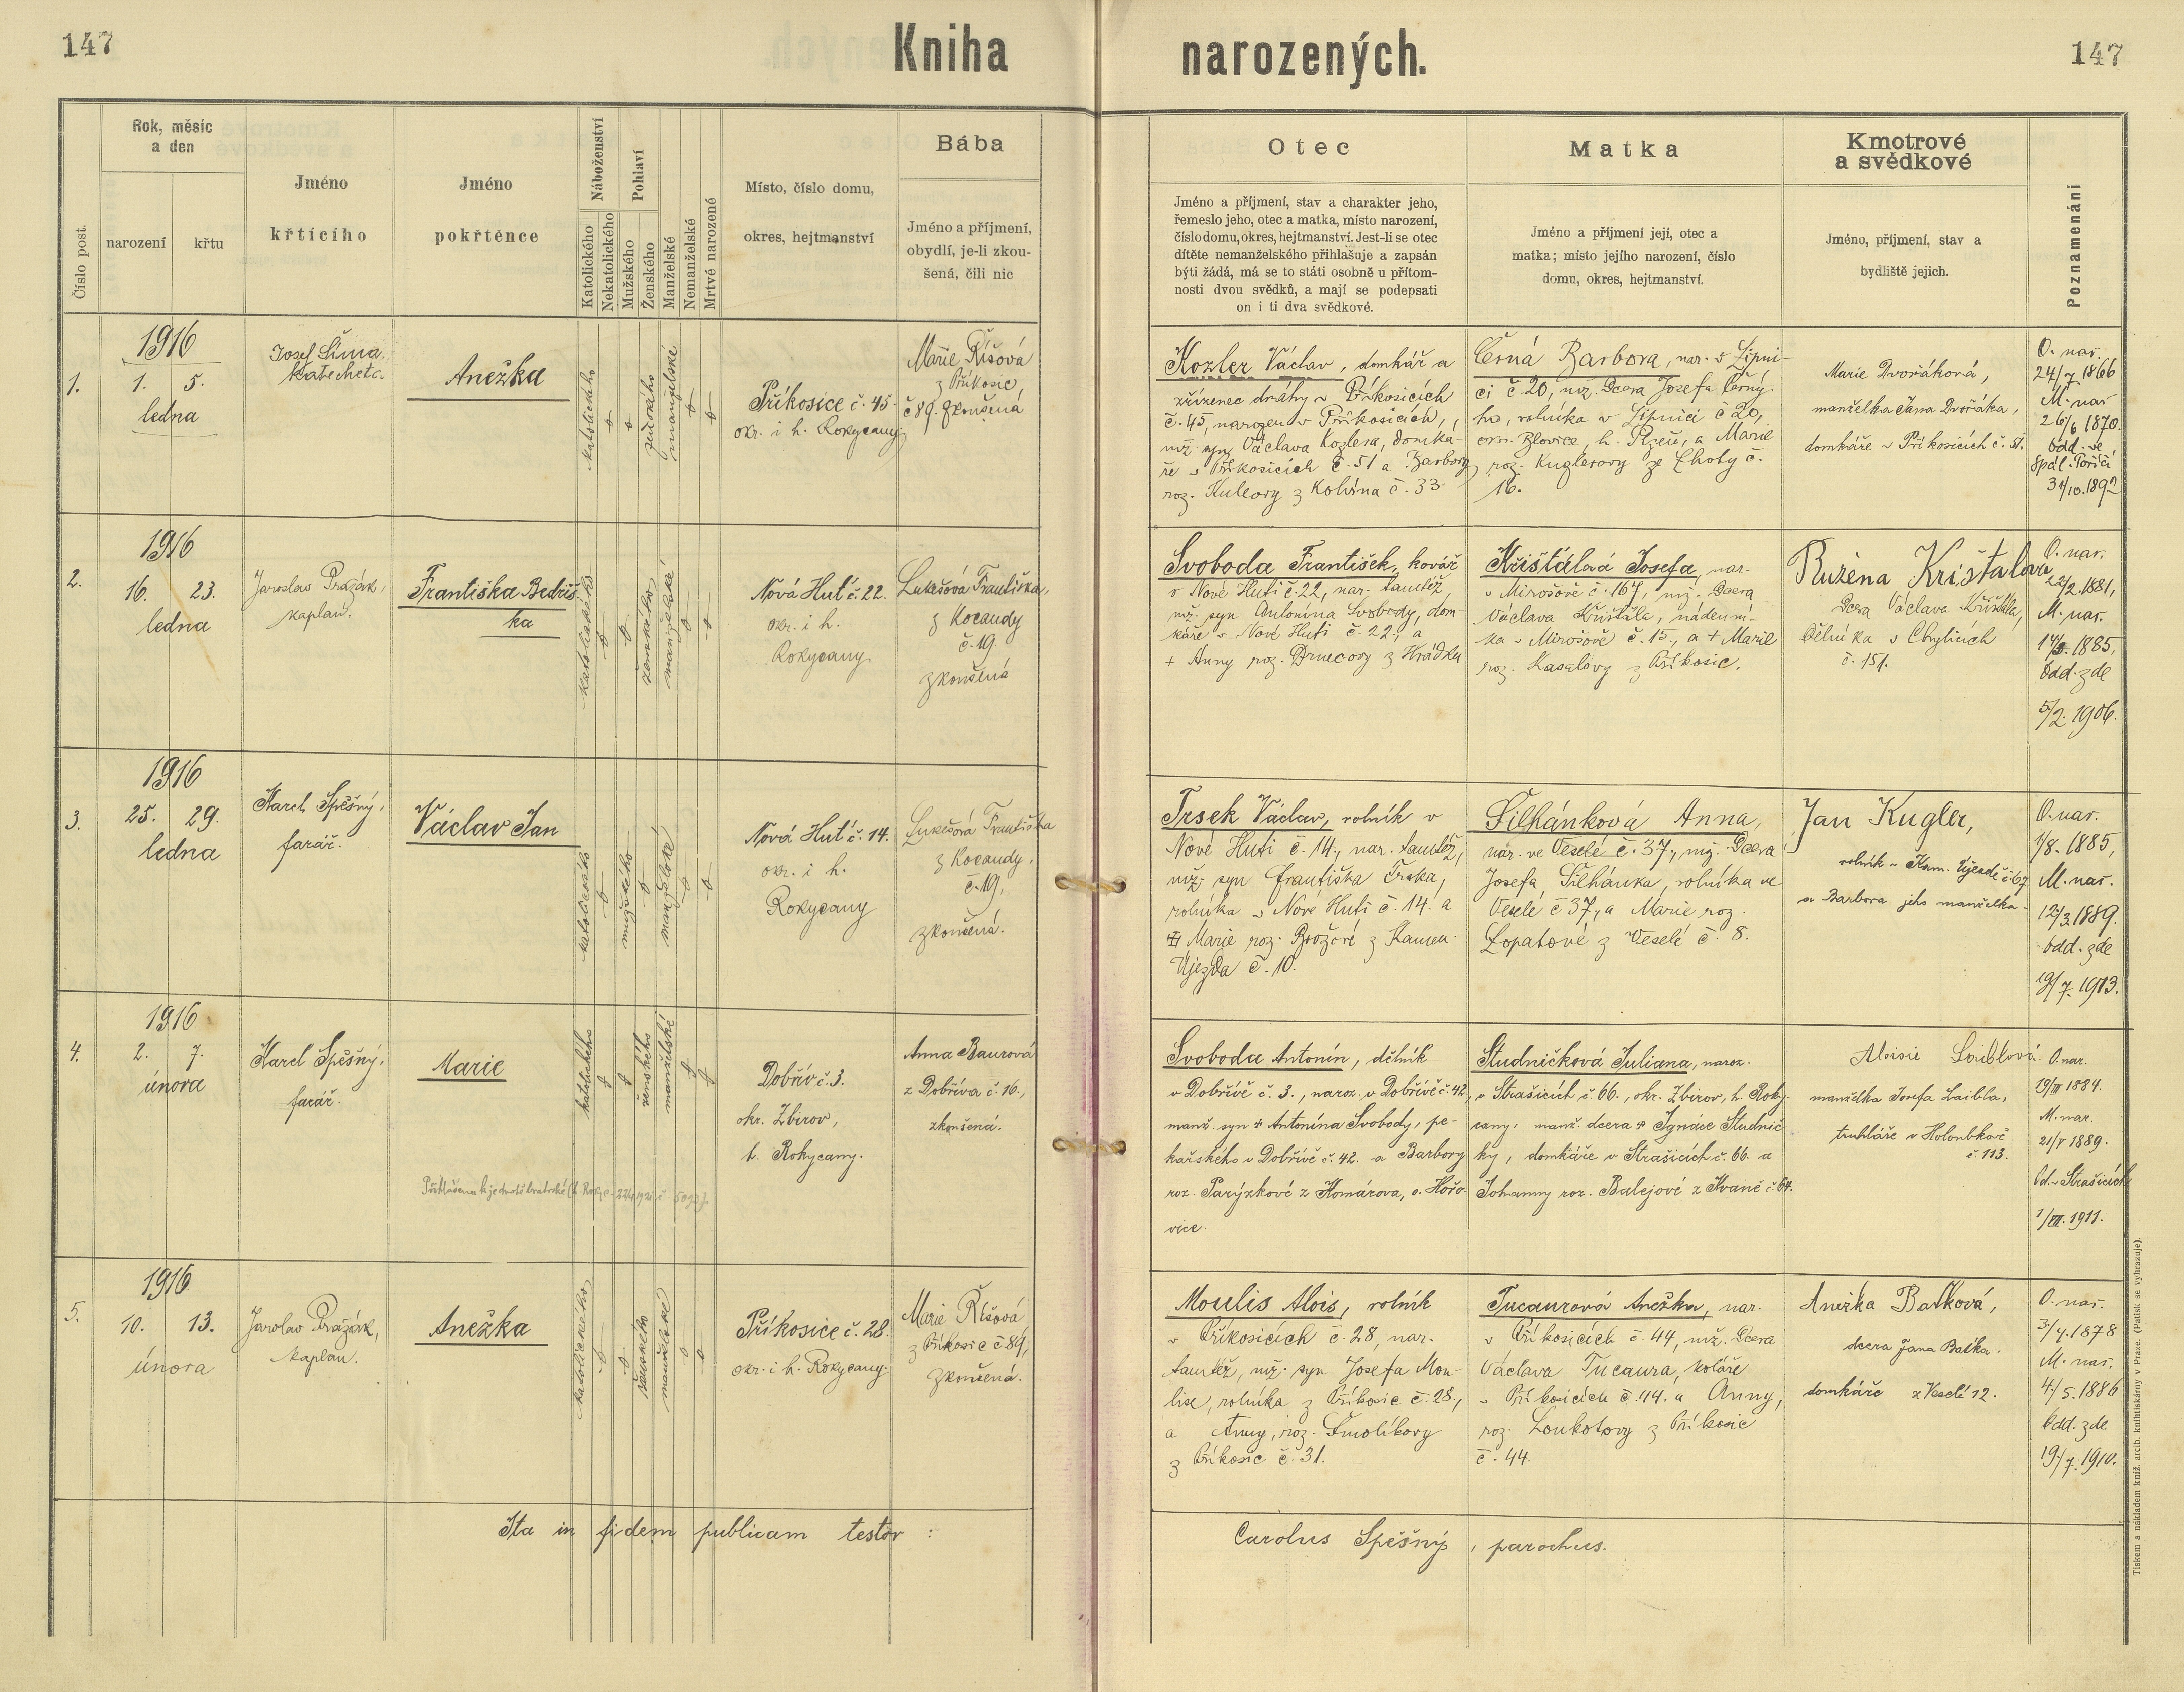 147
Kniha
narozených.
147
Číslo post.
Rok, měsíc
a den
narození
křtu
Jméno
křtícího
Jméno
pokřtěnce
Náboženství
Katolického
Nekatolického
Pohlaví
Mužského
Ženského
Manželské
Nemanželské
Mrtvé narozené
Místo, číslo domu,
okres, hejtmanství
Bába
Jméno a příjmení,
obydlí, je-li zkou-
šená, čili nic
Otec
Jméno a příjmení, stav a charakter jeho,
řemeslo jeho, otec a matka, místo narození,
číslo domu, okres, hejtmanství. Jest-li se otec
dítěte nemanželského přihlašuje a zapsán
býti žádá, má se to státi osobně u přítom-
nosti dvou svědků, a mají se podepsati
on i ti dva svědkové.
Matka
Jméno a příjmení její, otec a
matka; místo jejího narození, číslo
domu, okres, hejtmanství.
Kmotrové
a svědkové
Jméno, příjmení, stav a
bydliště jejich.
Poznamenání
1.
1916
1. 5.
ledna
Josef Šíma
katecheta.
Anežka
katolického
ženského
manželské
Příkosice č. 45.
okr. i h. Rokycany.
Marie Říšová
z Příkosic,
č 89. zkoušená
Kozler Václav, domkář a
zřízenec dráhy v Příkosicích
č. 45, narozen v Příkosicích,
mž. syn Václava Kozlera, domká-
ře v Příkosicích č. 51 a Barbory
roz. z Kolvína č. 33.
Černá Barbora, nar. v Lipni-
ci č 20, mž. dcera Josefa Černý-
ho, rolníka v Lipnici č 20,
okr. Blovice, h. Plzeň, a Marie
roz. Kuglerovy ze Lhoty č.
16.
Marie Dvořáková,
manželka Jana Dvořáka,
domkáře v Příkosicích č. 51.
O. nar.
24/7. 1866
M. nar.
26/6 1870.
Odd. ve
Spál. Poříčí
31/10. 1892
2.
1916
16. 23.
ledna
Jaroslav Pražák,
kaplan.
Františka Bedřiš-
ka
katolického
ženského
manželské
Nová Huť č. 22.
okr. i h.
Rokycany
Lukešová Františka,
z Kocandy
č. 19.
zkoušená
Svoboda František, kovář
v Nové Huti č. 22, nar. tamtéž,
mž. syn Antonína Svobody, dom-
káře v Nové Huti č. 22, a
+ Anny roz. z Hrádku
Křišťálová Josefa, nar.
v Mirošově č. 167, mž. dcera
Václava Křišťála, nádení-
ka v Mirošově č. 13., a + Marie
roz. Kasalovy z Příkosic.
Růžena Křišťálová
dcera Václava Křišťála,
dělníka v Chylicích
č. 151.
O. nar.
22/2. 1881,
M. nar.
1885,
Odd. zde
5/2. 1906.
3.
1916
25. 29.
ledna
Karel Spěšný,
farář.
Václav Jan
katolického
mužského
manželské
Nová Huť č. 14.
okr. i h.
Rokycany
Lukešová Františka
z Kocandy,
č. 19,
zkoušená.
Trsek Václav, rolník v
Nové Huti č. 14, nar. tamtéž,
mž. syn Františka Trska,
rolníka v Nové Huti č. 14. a
Marie roz. Brožové z Kamen.
Újezda č. 10.
Šilhánková Anna,
nar. ve Veselé č. 37, mž. dcera
Josefa Šilhánka, rolníka ve
Veselé č 37, a Marie roz.
Lopatové z Veselé č. 8.
Jan Kugler,
rolník v Kam. Újezdě č. 67
a Barbora jeho manželka.
O. nar.
7/8. 1885,
M. nar.
12/3 1889.
Odd. zde
19/7. 1913.
4.
1916
2. 7.
února
Karel Spěšný,
farář.
Marie
katolického
ženského
manželské
Dobřív č. 3.
okr. Zbirov,
h. Rokycany.
Anna Baurová
z Dobříva č. 16.,
zkoušená.
Svoboda Antonín, dělník
v Dobřívě č. 3., naroz. v Dobřívě č. 42,
manž. syn + Antonína Svobody, pe-
kařského v Dobřívě č. 42. a Barbory
roz. Parýzkové z Komárova, o. Hořo-
vice.
Studničková Juliana, naroz.
v Strašicích č. 66., okr. Zbirov, h. Roky-
cany, manž. dcera + Ignáce Studnič-
ky, domkáře v Strašicích č. 66. a
Johanny roz. Balejové z Kvaně č. 64.
Aloisie Loiblová
manželka Josefa Laibla,
truhláře v Holoubkově
č. 113.
O. nar.
1884.
M. nar.
21/V 1889.
Od. v Strašicích
1/VII. 1911.
5.
1916
10. 13.
února
Jaroslav Pražák,
kaplan.
Anežka
katolického
ženského
manželské
Příkosice č. 28.
okr. i h. Rokycany.
Marie Říšová
z Příkosic č 89,
zkoušená.
Moulis Alois, rolník
v Příkosicích č. 28, nar.
tamtéž, mž. syn Josefa Mou-
lise, rolníka z Příkosic č. 28.,
a Anny, roz. Smolíkovy
z Příkosic č. 31.
Tucaurová Anežka, nar.
v Příkosicích č. 44, mž. dcera
Václava Tucaura, koláře
v Příkosicích č. 44. a Anny,
roz. Loukotovy z Příkosic
č. 44.
Anežka Baťková,
dcera Jana Baťka.
domkáře z Veselí 12.
O. nar.
3/4. 1878
M. nar.
4/5. 1886
Odd. zde
19/7. 1910.
Ita in fidem publicam testor :
Carolus Spěšný, parochus.
Tiskem a nákladem kníž. arcib. knihtiskárny v Praze. (Patisk se vyhrazuje).